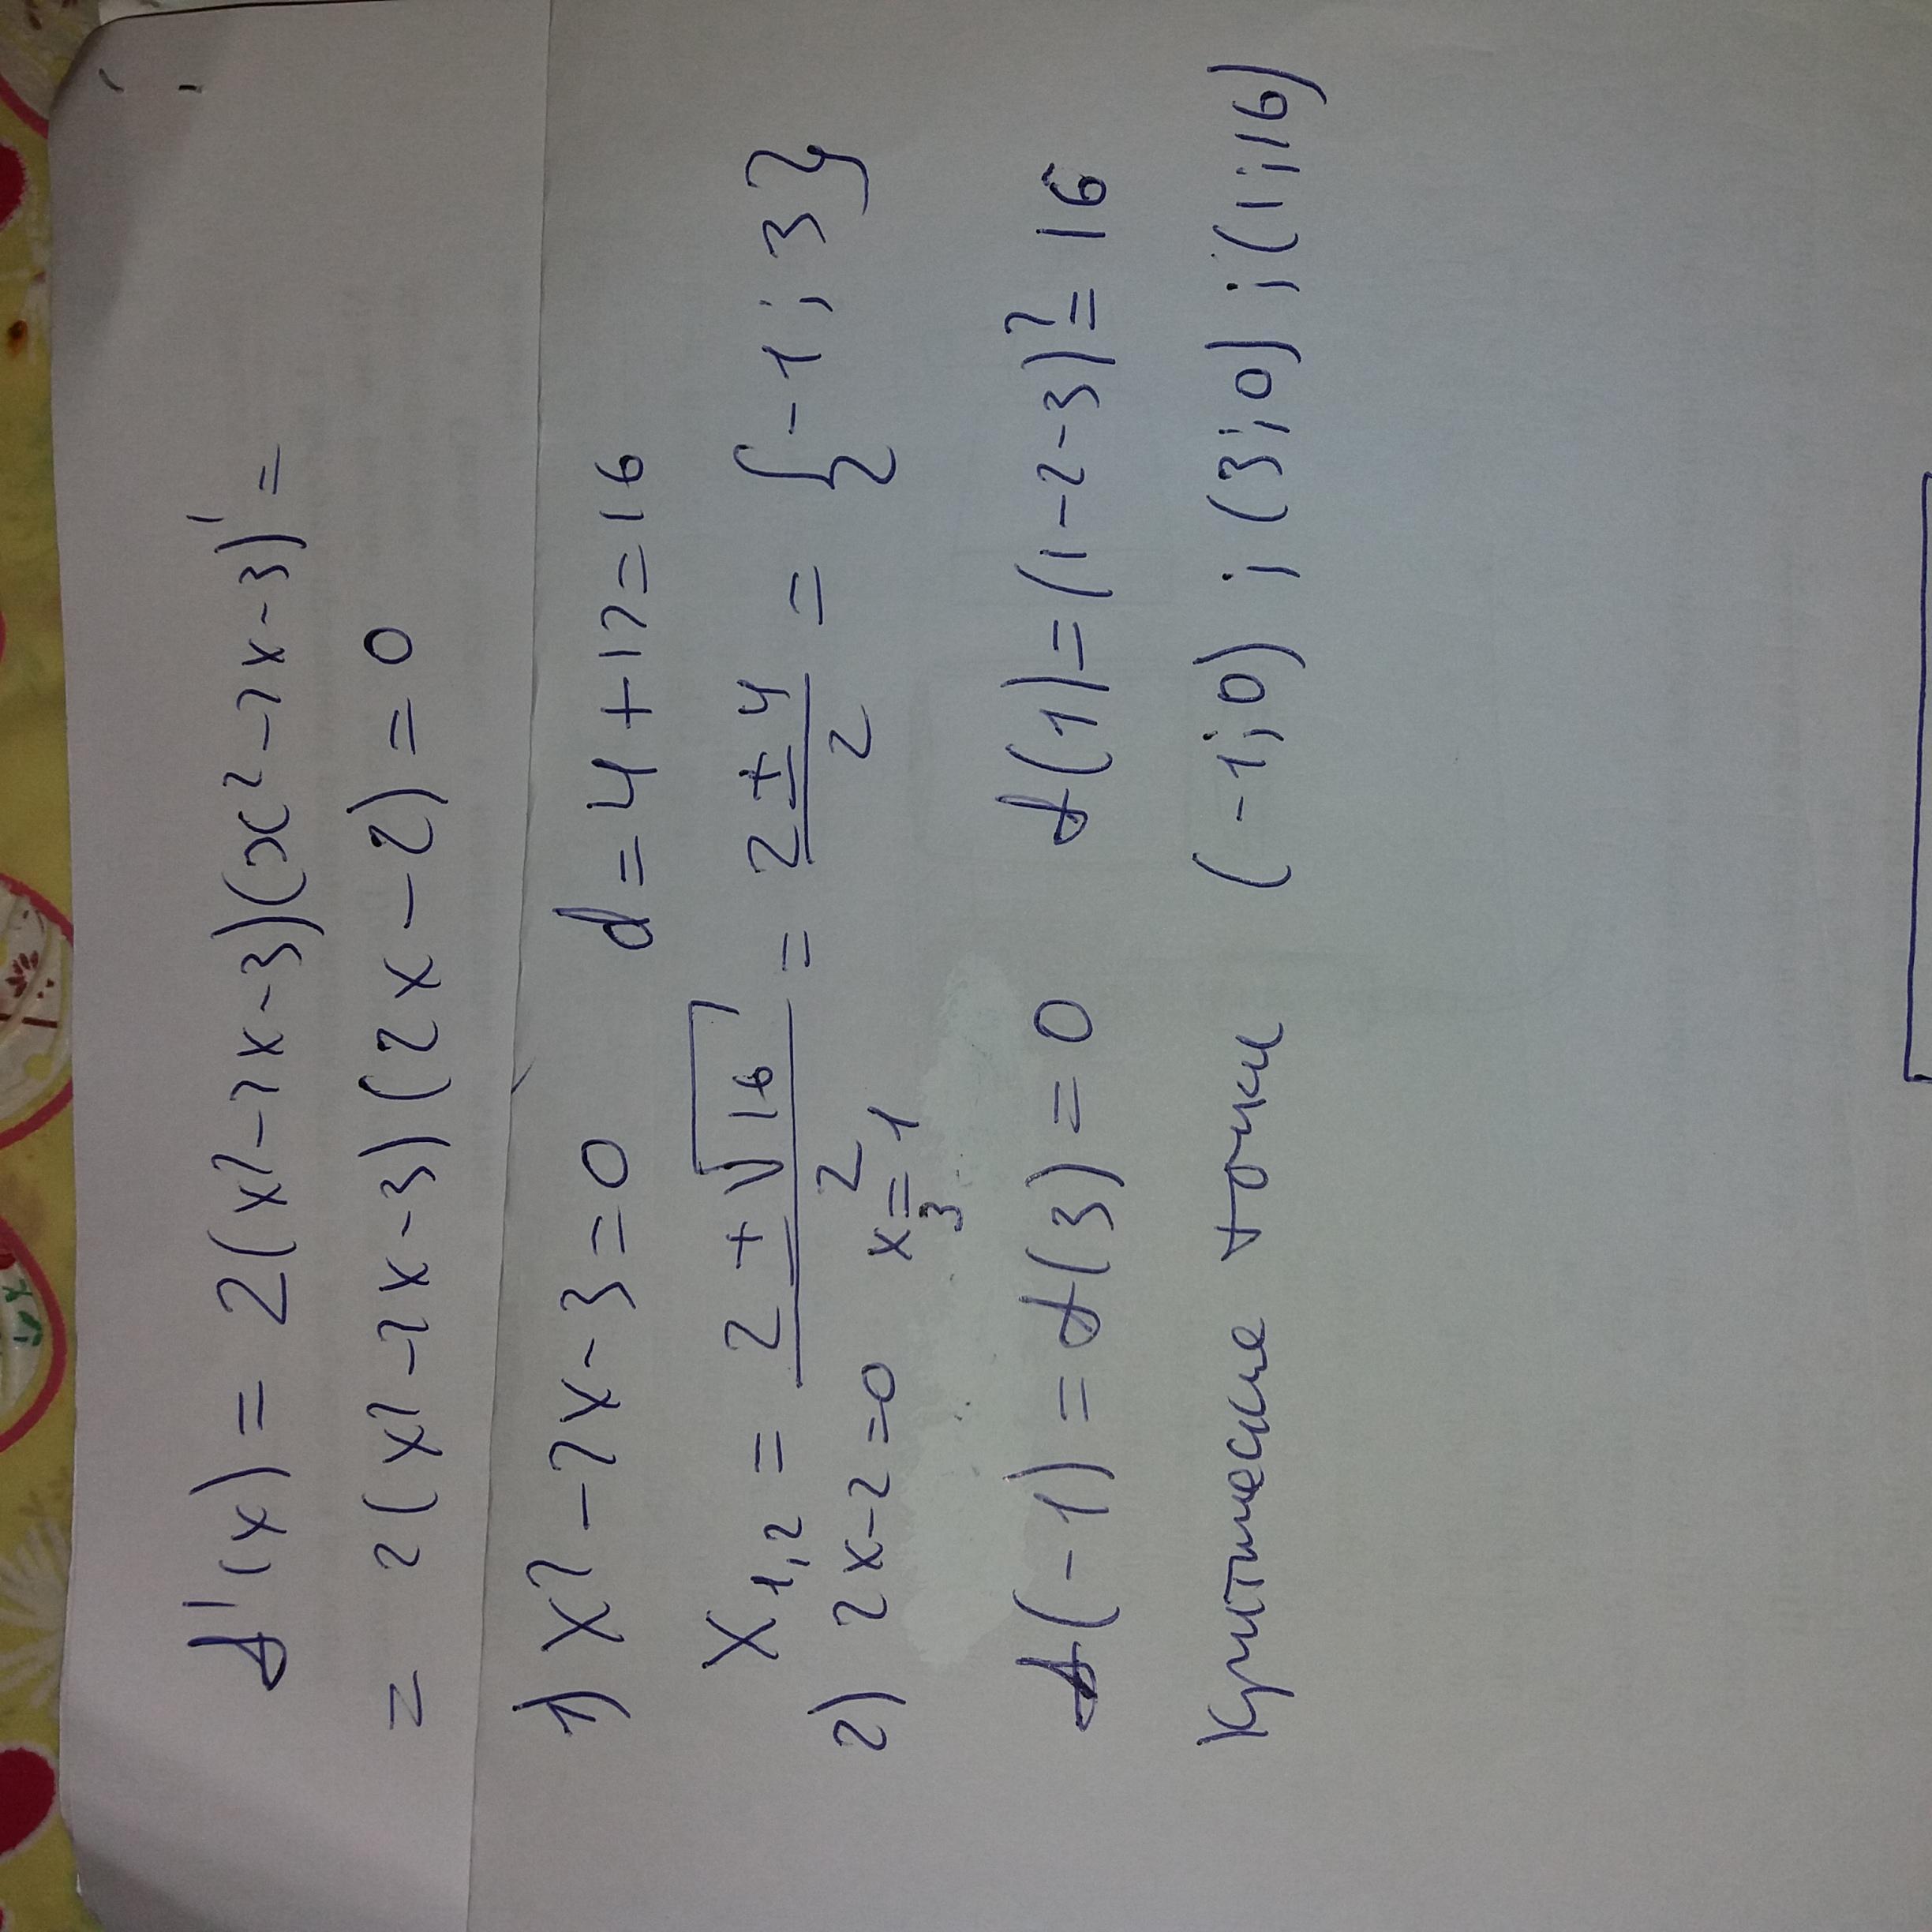 f'(x) = 2(x²-2x-3)(x²-2x-3)' =
= 2(x²-2x-3)(2x-2)=0
1) x²-2x-3=0 d=4+12=16
x₁,₂ = (2±√16)/2 = (2±4)/2 = {-1; 3}
2) 2x-2=0 x₃=1
f(-1)=f(3)=0 f(1)=(1-2-3)²=16
Критические точки (-1;0) ; (3;0) ; (1;16)